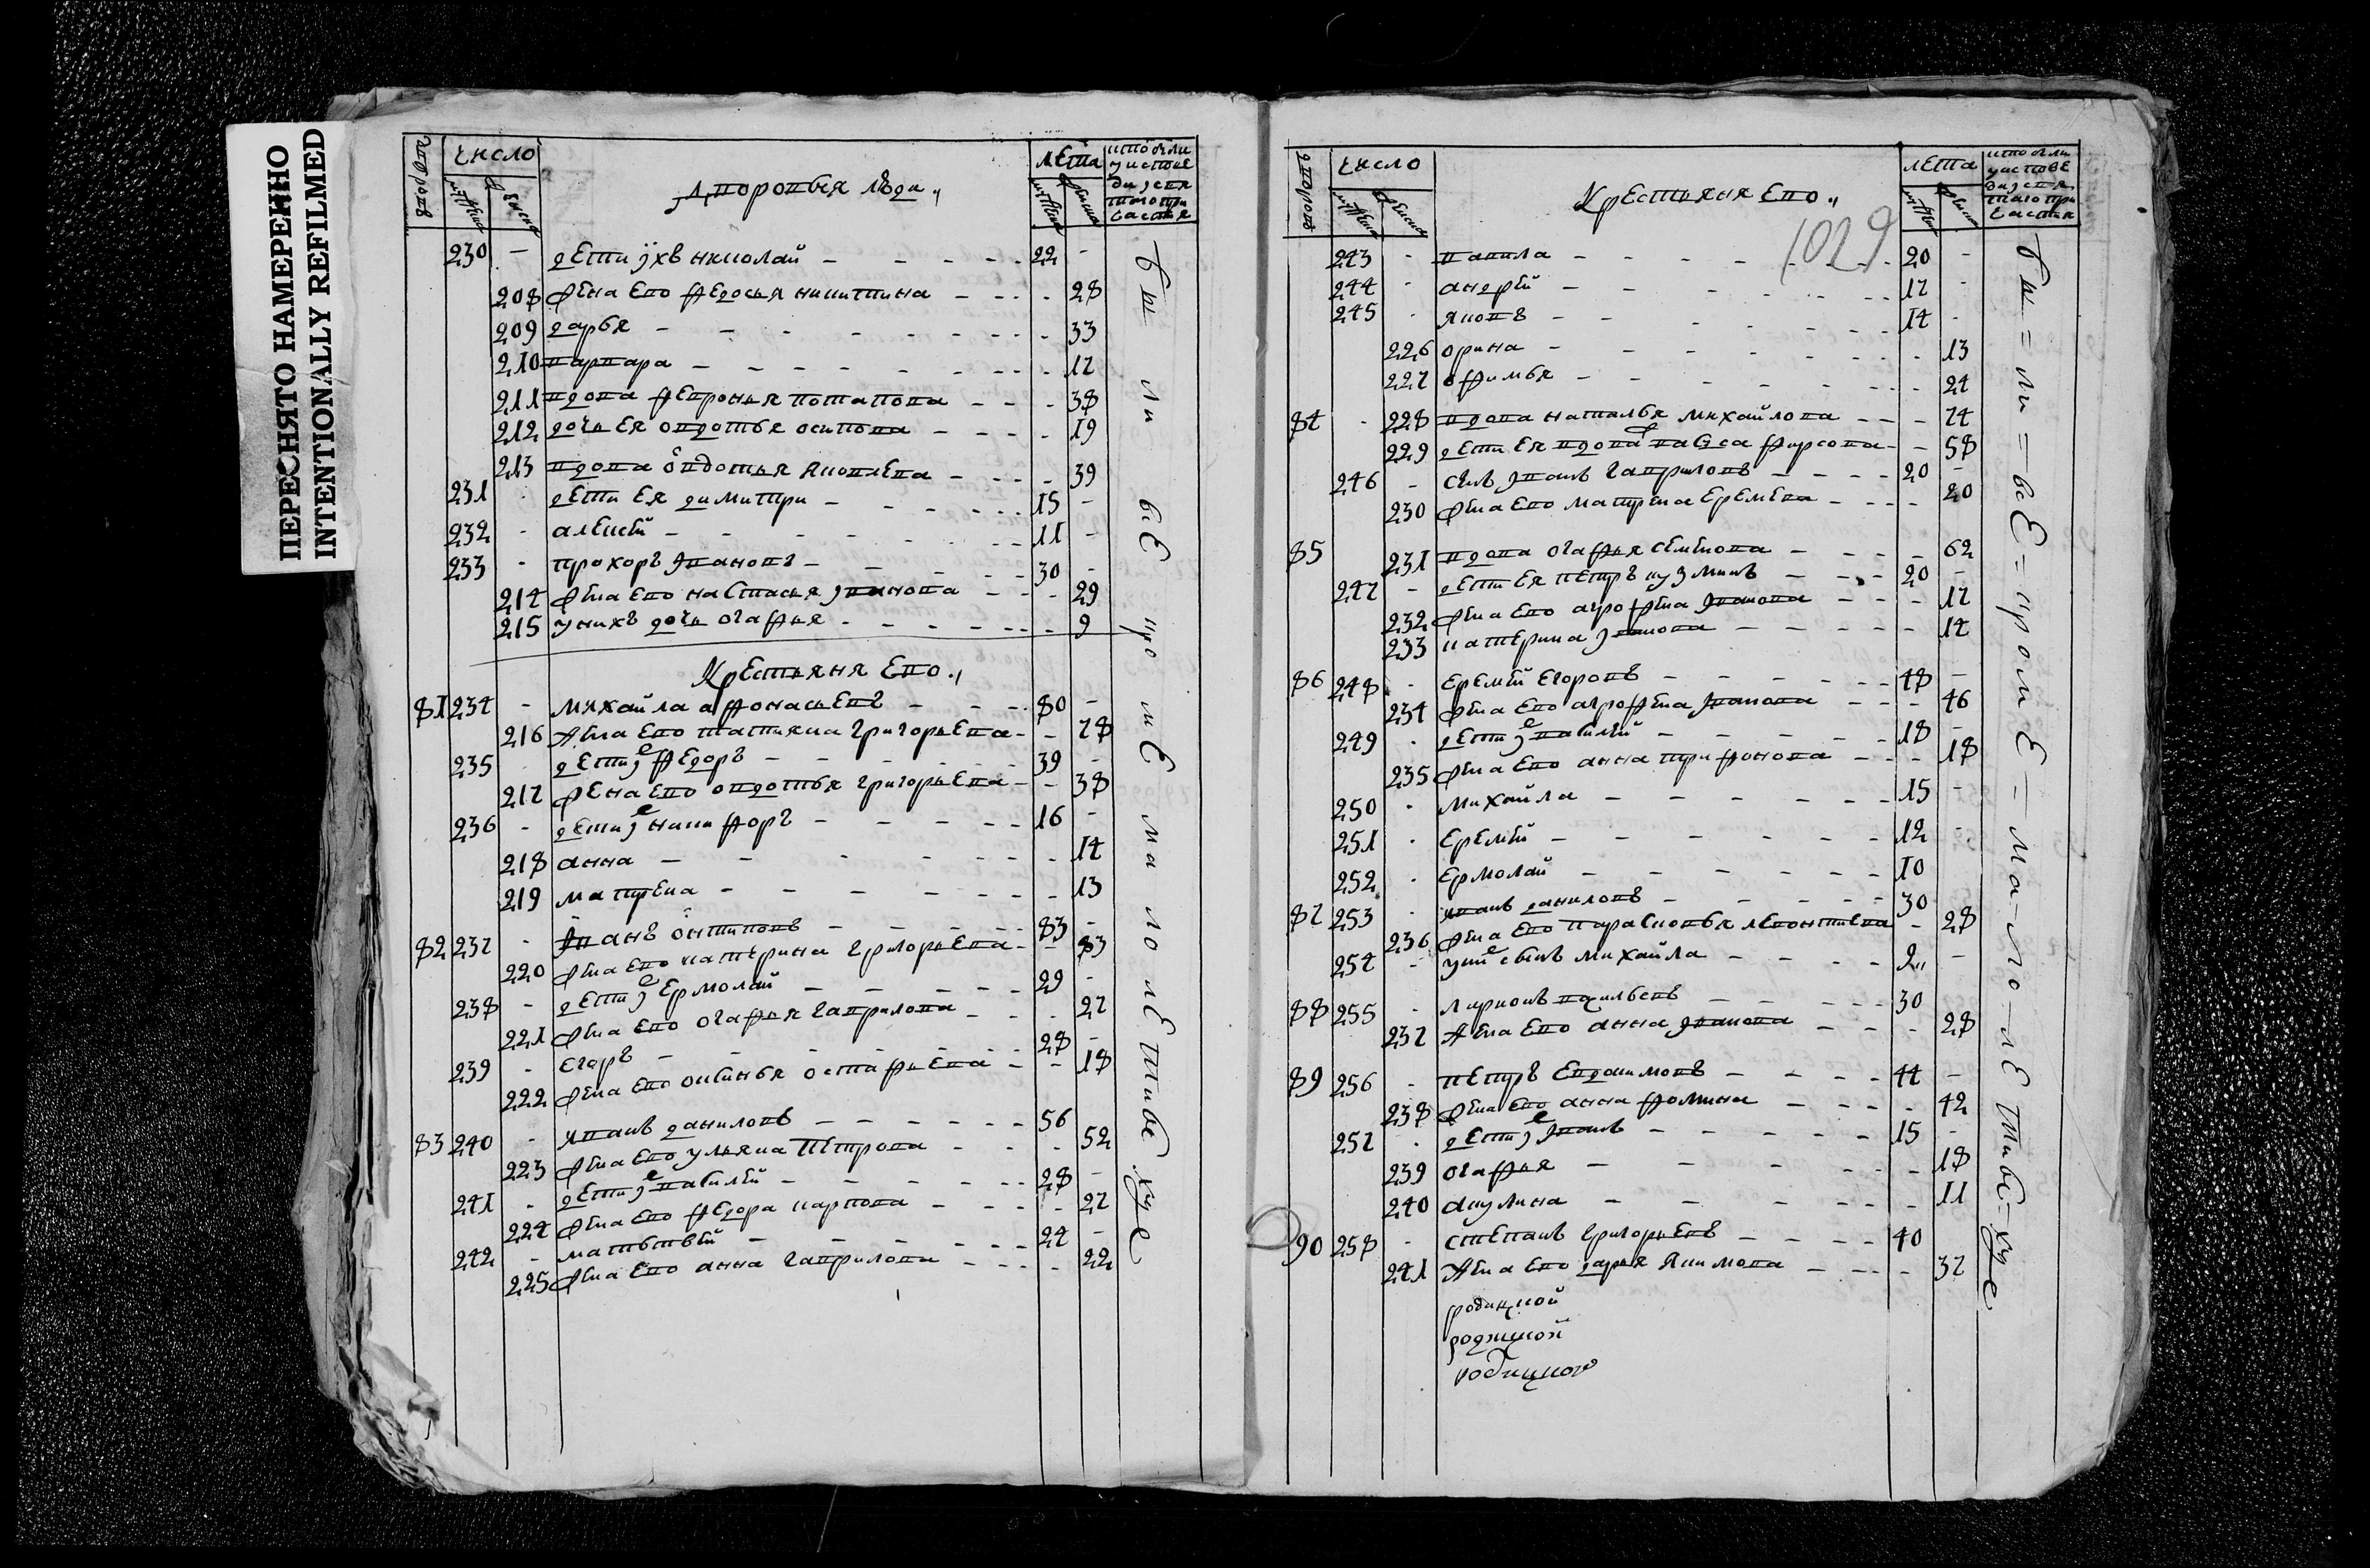 ПЕРЕСНЯТО НАМЕРЕННО
INTENTIONALLY REFILMED
число
Дворовыя люди
лета
230 - дети ихъ николай - 22 -
208 жена ево федосья никитина - 28
209 дарья - 33
210 варвара - 17
211 вдова февронья потапова - 38
212 дочь ея овдотья осипова - 19
213 вдова овдотья яковлева - 39
231 дети ея димитри - 15 -
232 - алексей - 11 -
233 - прохоръ ивановъ - 30 -
214 жена ево настасья иванова - 29
215 у нихъ дочь огафья - 9
Крестьяня ево
81 234 - михайла афонасьевъ - 80 -
216 жена ево татияна григорьева - 78
235 дети федоръ - 39 -
217 жена ево овдотья григорьева - 38
236 - дети никифоръ - 16 -
218 анна - 14
219 матрена - 13
82 237 - иванъ онтиповъ - 83 -
220 жена ево катерина григорьева - 83
238 - дети ермолай - 29 -
221 жена ево огафья гаврилова - 27
239 - егоръ - 28 -
222 жена ево оксинья остафьева - 18
83 240 - иванъ даниловъ - 56
223 жена ево ульяна петрова - 52
241 - дети василей - 28 -
224 жена ево федора карпова - 27
242 - матвей - 24 -
225 жена ево анна гаврилова - 22
были все кроме малолетивеху
число
Крестьяня ево
лета
1029
243 - вавила - 20 -
244 - андрей - 17 -
245 - яковъ - 14 -
226 орина - 13
227 офимья - 24
84 - 228 вдова наталья михайлова - 74
229 дети ея вдова фирсова - 58
246 - сынъ иванъ гавриловъ - 20 -
230 жена ево матрена еремеева - 20
85 231 вдова огафья семенова - 62
247 - дети ея петръ кузминъ - 20 -
232 жена ево аграфена иванова - 17
233 катерина иванова - 14
86 248 - еремей егоровъ - 48 -
234 жена ево аграфена иванова - 46
249 - дети василей - 18 -
235 жена ево анна трифонова - 18
250 - михайла - 15 -
251 - еремей - 12 -
252 - ермолай - 10
87 253 - иванъ даниловъ - 30
236 жена ево парасковья леонтиева - 28
254 - у них сынъ михайла - 2 -
88 255 - ларионъ васильевъ - 30
237 жена ево анна иванова - 28
89 256 - петръ евдокимовъ - 44 -
238 жена ево анна фомина - 42
257 - дети иванъ - 15 -
239 огафья - 18
240 акулина - 11
90 258 - степанъ григорьевъ - 40
241 жена ево дарья якимова - 37
родицкой
родицкой
родицкой